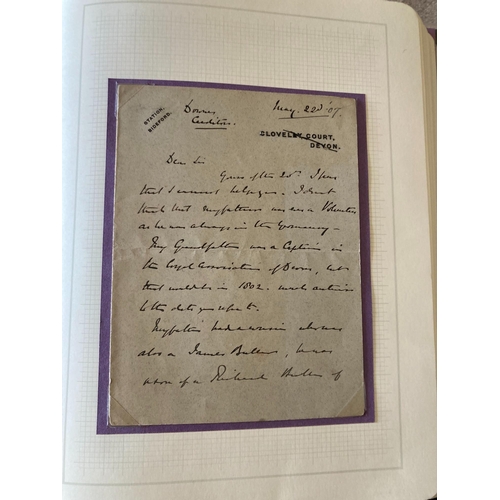 STATION,
BIDEFORD.
Downes
Crediton.
May. 22d '07.
CLOVELLY COURT,
DEVON.
Dear Sir
Yours of the 20th. I fear
that I cannot help you. I don't
think that my father was ever a Volunteer
as he was always in the Yeomanry —
My Grandfather was a Captain in
the Loyal Association of Devon, but
that was in 1802. much anterior
to the date you refer to.
My father had a cousin who was
also a James Buller, he was
a son of a Richard Buller of